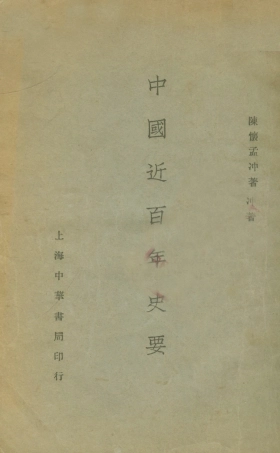 陳懷孟冲著
中國近百年史要
上海中華書局印行